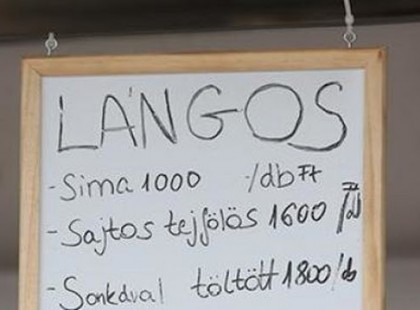 LÁNGOS
- Sima 1000 /db Ft
- Sajtos tejfölös 1600 Ft/db
- Sonkával töltött 1800/db